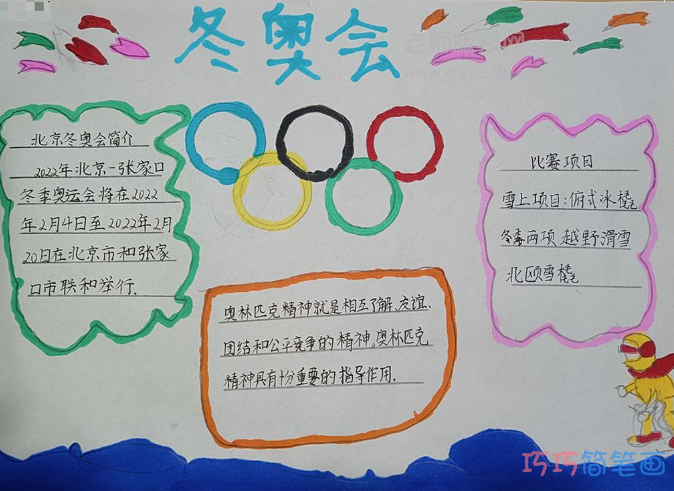 冬奥会
北京冬奥会简介
2022年北京-张家口
冬季奥运会将在2022
年2月4日至2022年2月
20日在北京市和张家
口市联和举行.
奥林匹克精神就是相互了解、友谊、
团结和公平竞争的精神,奥林匹克
精神具有十分重要的指导作用.
比赛项目
雪上项目:俯式冰橇
冬季两项 越野滑雪
北欧雪橇
巧巧简笔画